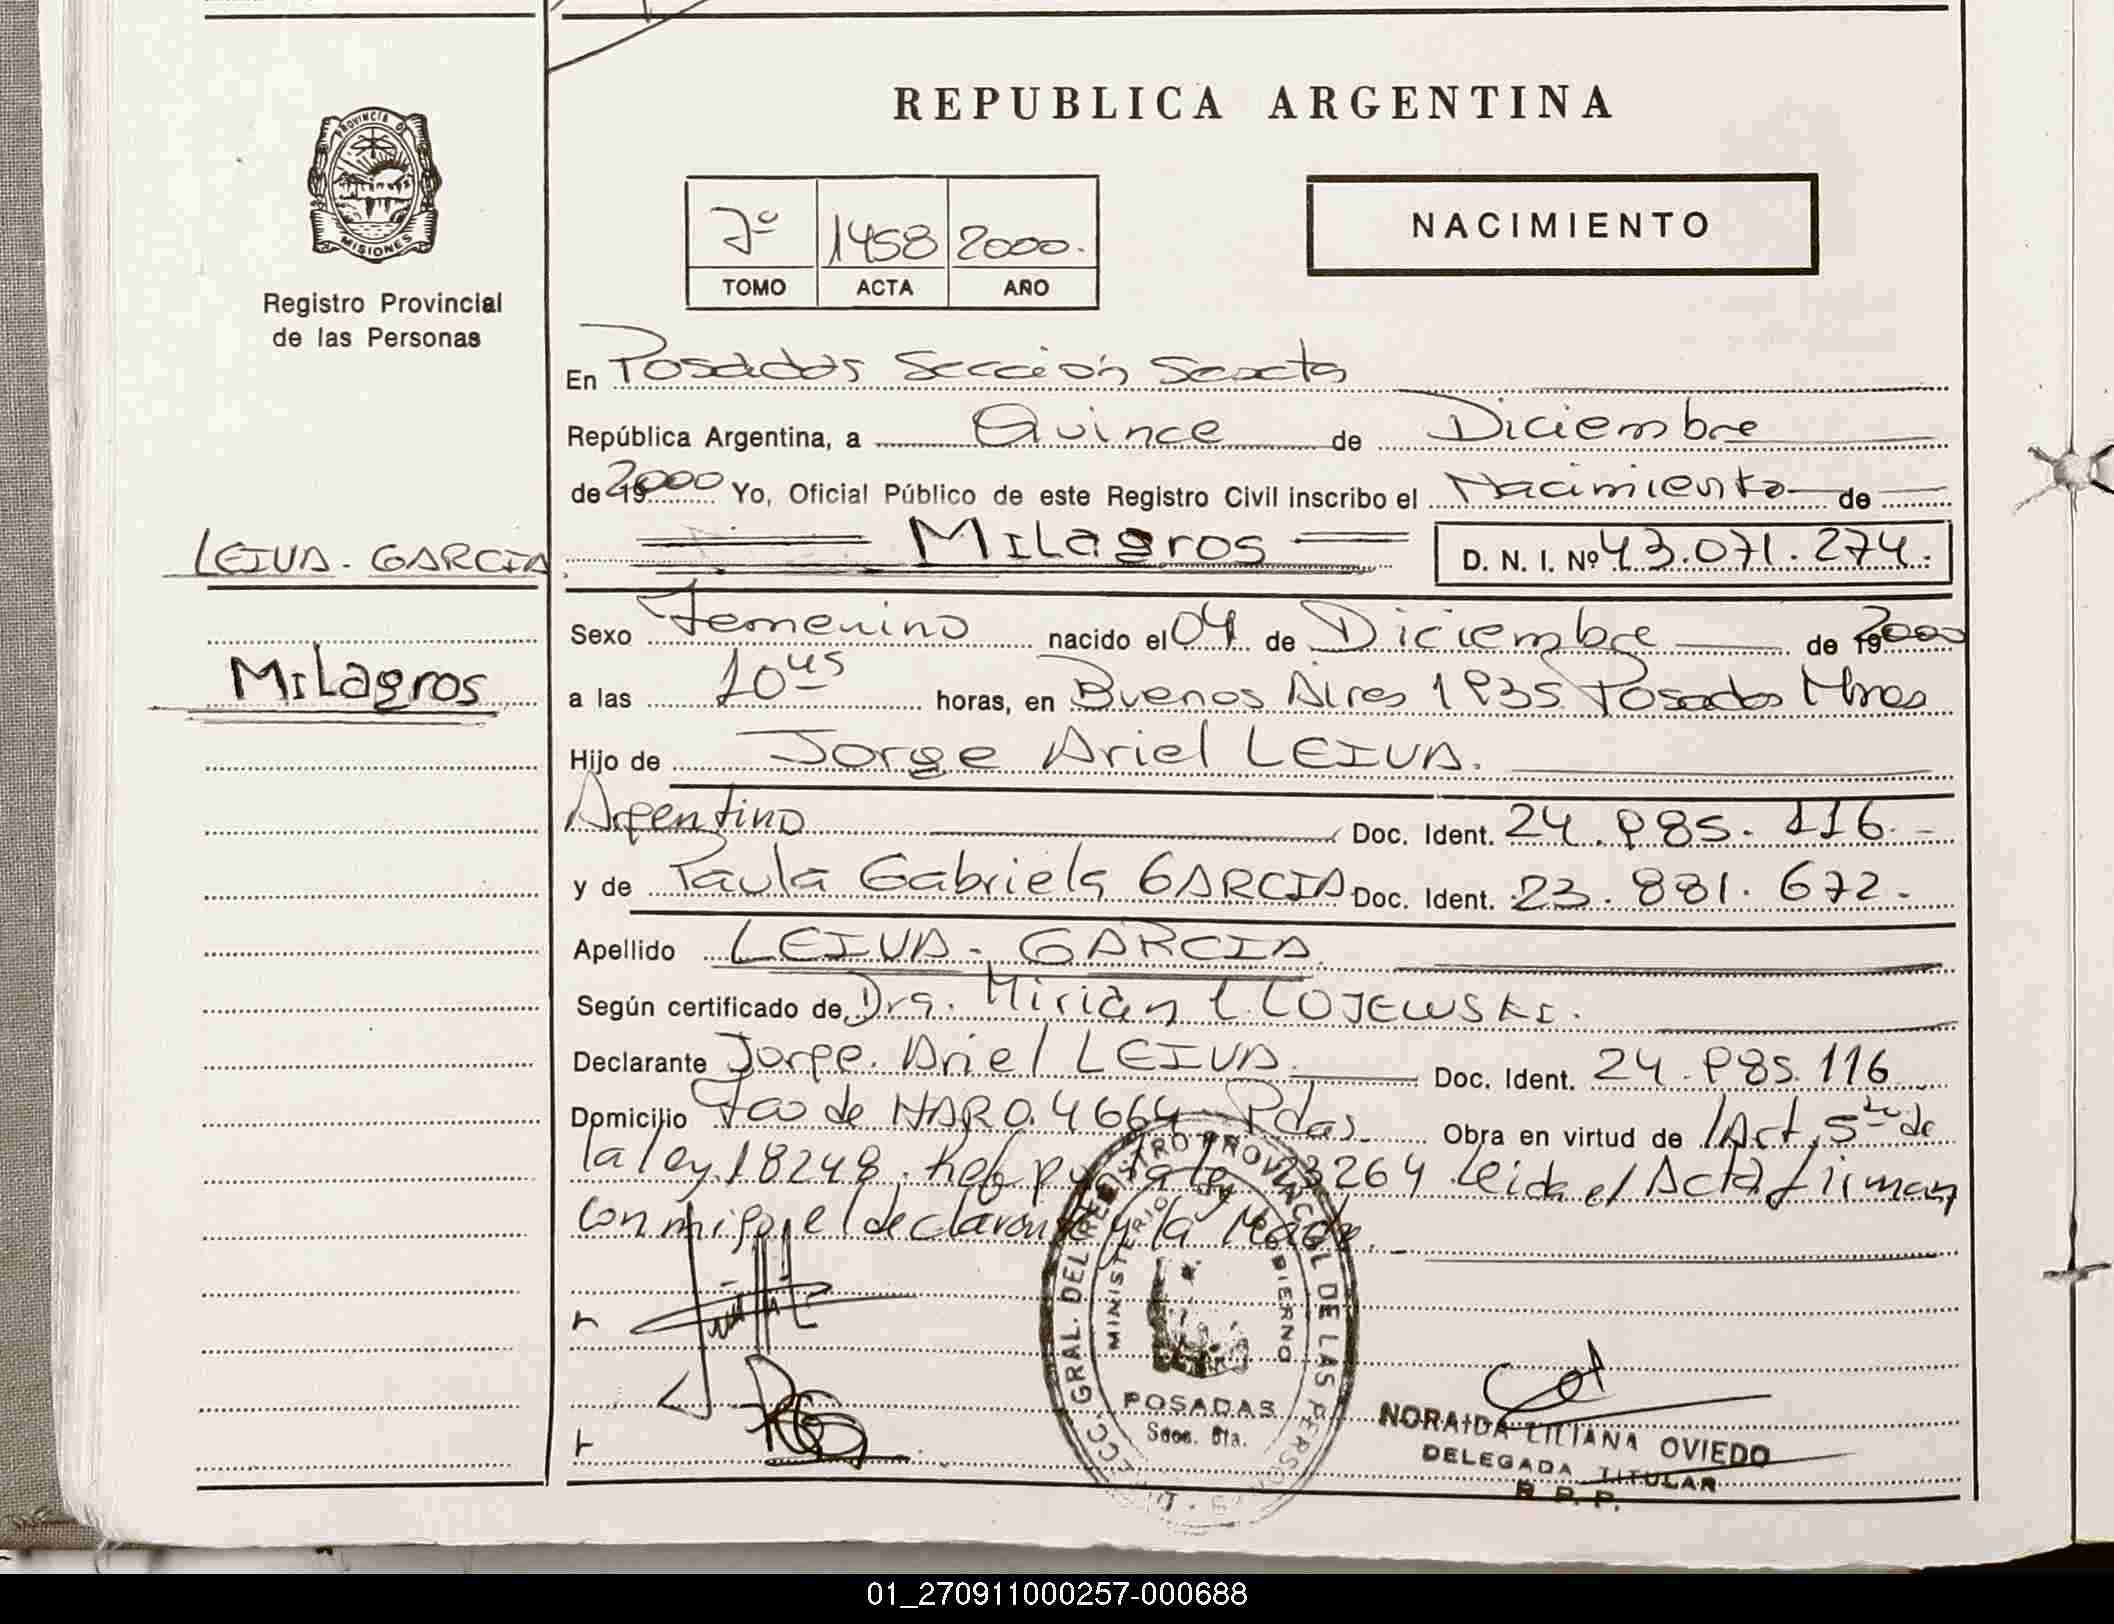 PROVINCIA DE
MISIONES
Registro Provincial
de las Personas
LEIVA - GARCIA
Milagros
REPUBLICA ARGENTINA
7º 1458 2000.
TOMO ACTA AÑO
NACIMIENTO
En Posadas Sección Sexta
República Argentina, a Quince de Diciembre
de 2000 Yo, Oficial Público de este Registro Civil inscribo el Nacimiento de
Milagros D. N. I. Nº 43.071.274.
Sexo Femenino nacido el 04 de Diciembre de 2000
a las 10 45 horas, en Buenos Aires 1935 Posadas Mnes
Hijo de Jorge Ariel LEIVA.
Argentino Doc. Ident. 24.985.116.-
y de Paula Gabriela GARCIA Doc. Ident. 23.881.672.
Apellido LEIVA - GARCIA
Según certificado de Dra. Mirian LOJEWSKI.
Declarante Jorge Ariel LEIVA. Doc. Ident. 24.985.116
Domicilio Fco de HARO. 4664 Pdas. Obra en virtud de Art. 5to de
la ley 18248. Ref por la ley 23264 Leida el Acta firman
conmigo el declarante y la Madre.
DIRECC. GRAL. DEL REGISTRO PROVINCIAL DE LAS PERSONAS
MINISTERIO DE GOBIERNO
POSADAS
Secc. 6ta.
NORAIDA LILIANA OVIEDO
DELEGADA TITULAR
R. P. P.
01_270911000257-000688